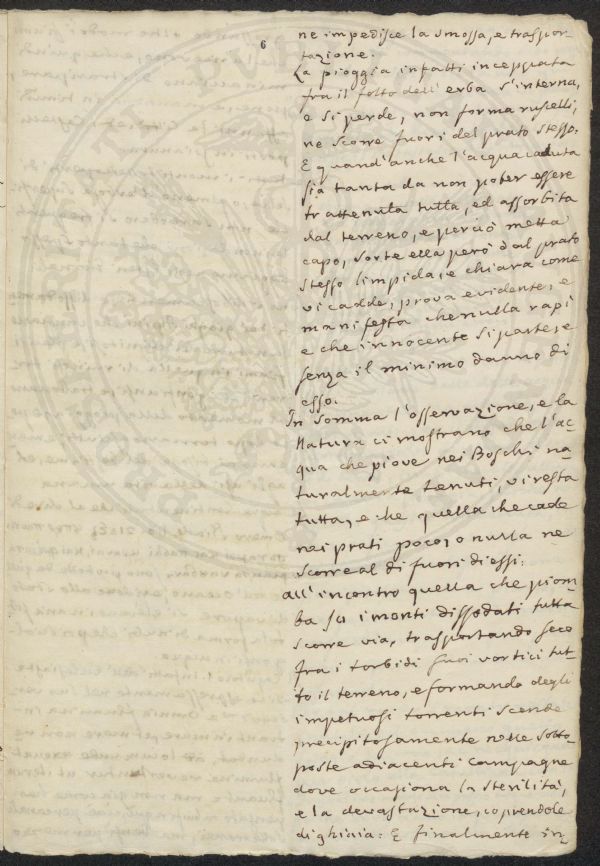 6
ne impedisce la smossa, e traspor-
tazione.
La pioggia infatti inceppata
fra il folto dell'erba s'interna,
e si perde, non forma ruscelli,
ne scorre fuori del prato stesso.
E quand'anche l'acqua caduta
sia tanta da non poter essere
trattenuta tutta, ed assorbita
dal terreno, e perciò metta
capo, sorte ella però dal prato
stesso limpida, e chiara come
vi cadde, prova evidente, e
manifesta che nulla rapì
e che innocente si parte, e
senza il minimo danno di
esso.
In somma l'osservazione, e la
Natura ci mostrano che l'ac-
qua che piove nei Boschi na-
turalmente tenuti, vi resta
tutta, e che quella che cade
nei prati poco, o nulla ne
scorre al di fuori di essi:
all'incontro quella che piom-
ba su i monti dissodati tutta
scorre via, trasportando seco
fra i torbidi suoi vortici tut-
to il terreno, e formando degli
impetuosi torrenti scende
precipitosamente nelle sotto-
poste adiacenti campagne
dove occasiona la sterilità,
e la devastazione, coprendole
di ghiaia: E finalmente in